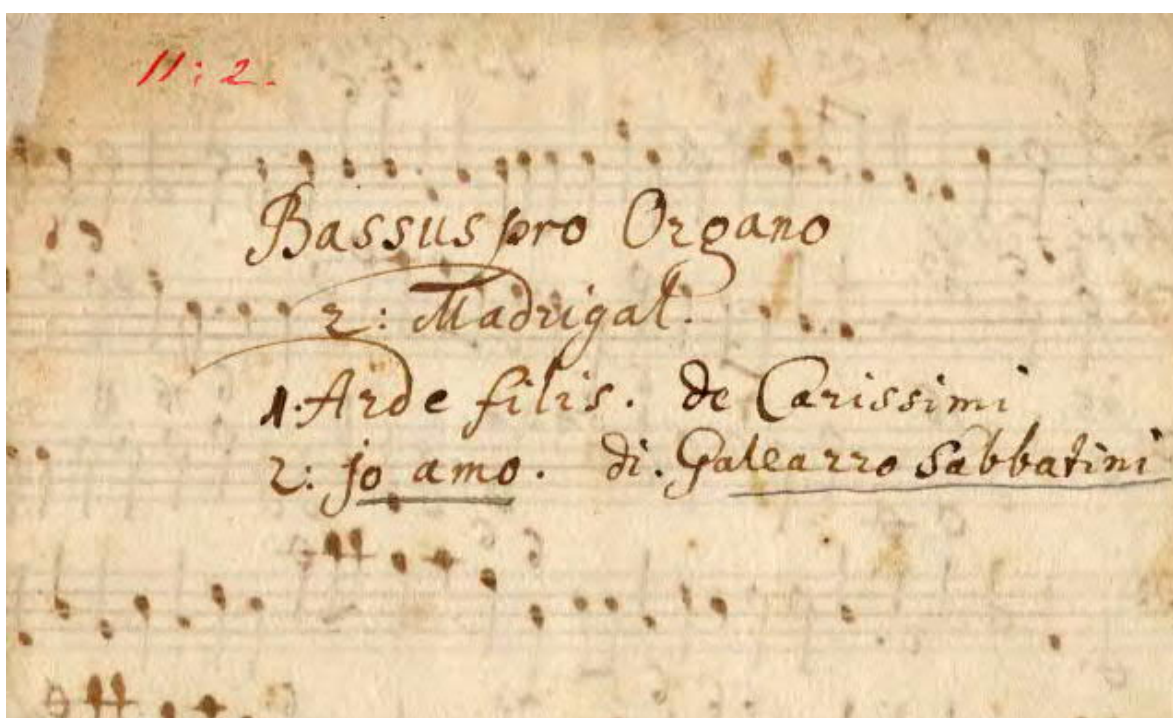 11: 2.
Bassus pro Organo
2: Madrigal.
1. Arde filis. de Carissimi
2: jo amo. di. Galeazzo Sabbatini